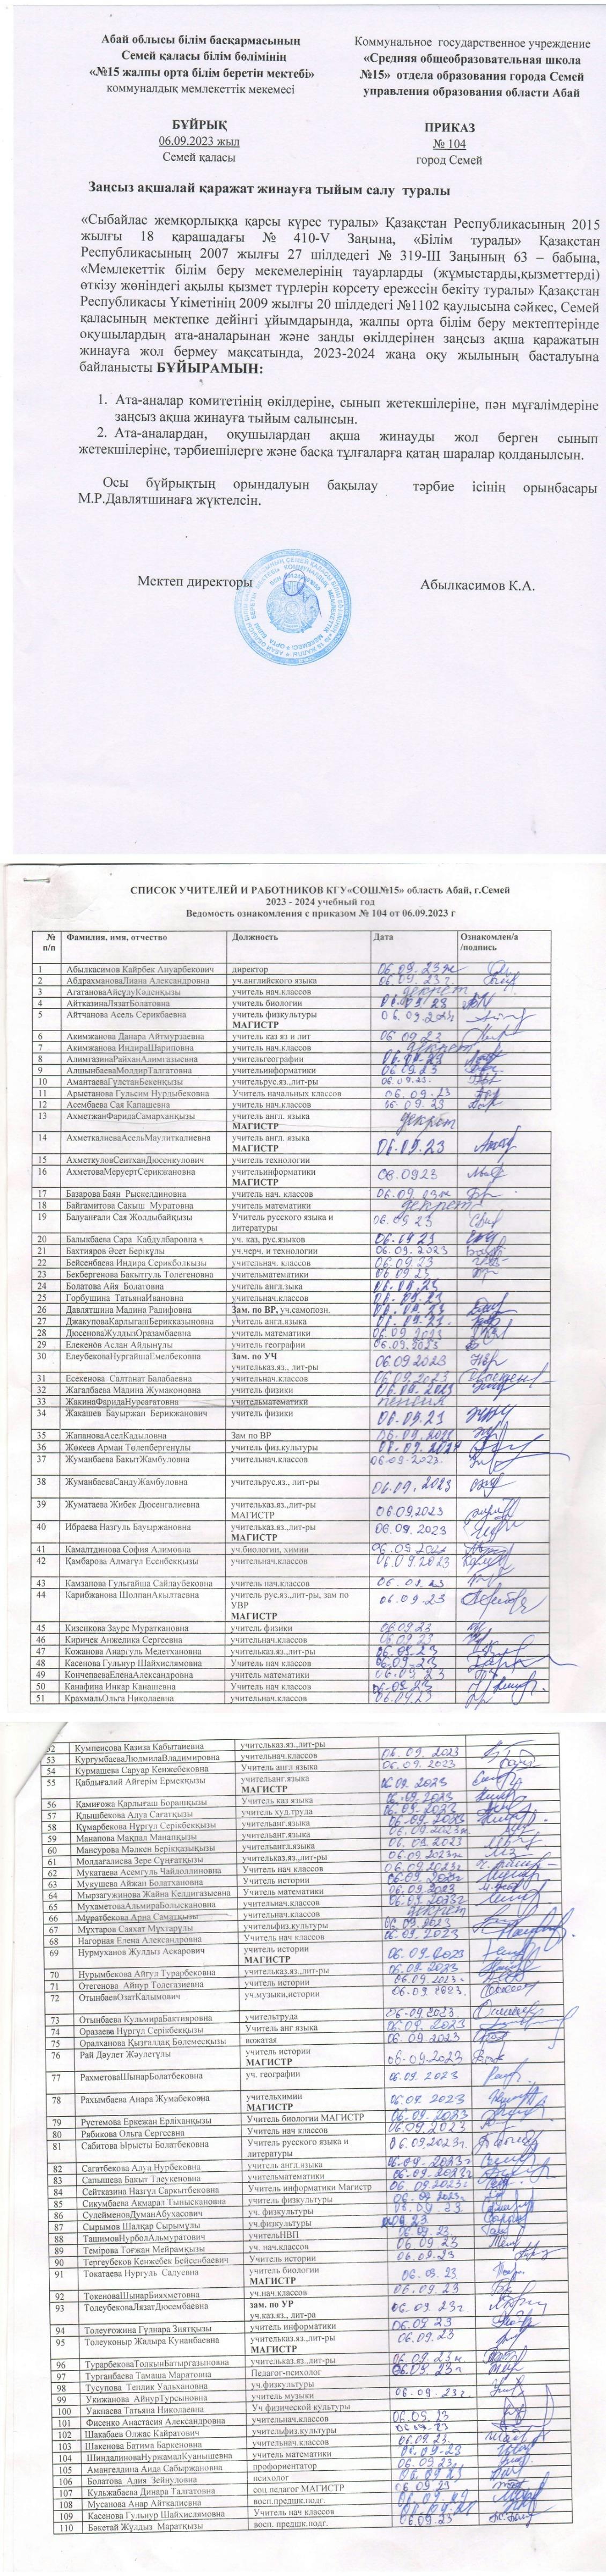 Абай облысы білім басқармасының
Семей қаласы білім бөлімінің
«№15 жалпы орта білім беретін мектебі»
коммуналдық мемлекеттік мекемесі
Коммунальное государственное учреждение
«Средняя общеобразовательная школа
№15» отдела образования города Семей
управления образования области Абай
БҰЙРЫҚ
06.09.2023 жыл
Семей қаласы
ПРИКАЗ
№ 104
город Семей
Заңсыз ақшалай қаражат жинауға тыйым салу туралы
«Сыбайлас жемқорлыққа қарсы күрес туралы» Қазақстан Республикасының 2015
жылғы 18 қарашадағы № 410-V Заңына, «Білім туралы» Қазақстан
Республикасының 2007 жылғы 27 шілдедегі № 319-III Заңының 63 – бабына,
«Мемлекеттік білім беру мекемелерінің тауарларды (жұмыстарды,қызметтерді)
өткізу жөніндегі ақылы қызмет түрлерін көрсету ережесін бекіту туралы» Қазақстан
Республикасы Үкіметінің 2009 жылғы 20 шілдедегі №1102 қаулысына сәйкес, Семей
қаласының мектепке дейінгі ұйымдарында, жалпы орта білім беру мектептерінде
оқушылардың ата-аналарынан және заңды өкілдерінен заңсыз ақша қаражатын
жинауға жол бермеу мақсатында, 2023-2024 жаңа оқу жылының басталуына
байланысты БҰЙЫРАМЫН:
1. Ата-аналар комитетінің өкілдеріне, сынып жетекшілеріне, пән мұғалімдеріне
заңсыз ақша жинауға тыйым салынсын.
2. Ата-аналардан, оқушылардан ақша жинауды жол берген сынып
жетекшілеріне, тәрбиешілерге және басқа тұлғаларға қатаң шаралар қолданылсын.
Осы бұйрықтың орындалуын бақылау тәрбие ісінің орынбасары
М.Р.Давлятшинаға жүктелсін.
Мектеп директоры Абылкасимов К.А.
СПИСОК УЧИТЕЛЕЙ И РАБОТНИКОВ КГУ«СОШ№15» область Абай, г.Семей
2023 - 2024 учебный год
Ведомость ознакомления с приказом № 104 от 06.09.2023 г
№ п/п Фамилия, имя, отчество Должность Дата Ознакомлен/а /подпись
1 Абылкасимов Кайрбек Ануарбекович директор
2 АбдрахмановаЛиана Александровна уч.английского языка
3 АгатановаАйсұлуКаденқызы учитель нач.классов декрет
4 АйтказинаЛязатБолатовна учитель биологии
5 Айтчанова Асель Серикбаевна учитель физкультуры МАГИСТР
6 Акимжанова Данара Айтмурзаевна учитель каз яз и лит 06 09 23
7 Акимжанова ИндираШариповна учитель нач.классов декрет
8 АлимгазинаРайханАлимгазыевна учительгеографии
9 АлшынбаеваМолдирТалгатовна учительинформатики 06 09 23
10 АмантаеваГүлстанБекенқызы учительрус.яз.,лит-ры 06.09.23.
11 Арыстанова Гульсим Нурдыбековна Учитель начальных классов 06.09.23
12 Асембаева Сая Капашевна учитель нач.классов 06.09.23
13 АхметжанФаридаСамарханқызы учитель англ. языка МАГИСТР декрет
14 АхметкалиеваАсельМаулиткалиевна учитель англ. языка МАГИСТР 06.09.23
15 АхметкуловСеитханДюсенкулович учитель технологии
16 АхметоваМеруертСерикжановна учительинформатики МАГИСТР 06.0923
17 Базарова Баян Рыскелдиновна учитель нач. классов
18 Байгамитова Сакыш Муратовна учитель математики декрет
19 Балуанғали Сая Жолдыбайқызы Учитель русского языка и литературы
20 Балыкбаева Сара Кабдулбаровна уч. каз, рус.языков
21 Бахтияров Әсет Берікұлы уч.черч. и технологии 06.09.2023
22 Бейсенбаева Индира Серикболкызы учительнач. классов 06.09.23
23 Бекбергенова Бакытгуль Толегеновна учительматематики
24 Болатова Айя Болатовна учитель англ.зыка
25 Горбушина ТатьянаИвановна учительнач.классов
26 Давлятшина Мадина Радифовна Зам. по ВР, уч.самопозн.
27 ДжакуповаКарлыгашБериккaзыновна учитель англ.языка
28 ДюсеноваЖулдызОразамбаевна учитель математики 06.09.2023
29 Елекенов Аслан Айдынұлы учитель географии 06.09.2023
30 ЕлеубековаНургайшаЕмелбековна Зам. по УЧ учительказ.яз., лит-ры 06 09 2023
31 Есекенова Салтанат Балабаевна учительнач.классов
32 Жагалбаева Мадина Жумаконовна учитель физики
33 ЖакинаФаридаНурғатовна учительматематики
34 Жакашев Бауыржан Берикжанович учитель физики
35 ЖапановаАселКадыловна Зам по ВР
36 Жөкеев Арман Төлепбергенұлы учитель физ.культуры
37 Жуманбаева БакытЖамбуловна учительнач.классов 06.09.2023.
38 ЖуманбаеваСандуЖамбуловна учительрус.яз., лит-ры
39 Жуматаева Жибек Дюсенгалиевна учительказ.яз.,лит-ры МАГИСТР 06.09.2023
40 Ибраева Назгуль Бауыржановна учительказ.яз.,лит-ры МАГИСТР 06.09.2023
41 Камалтдинова София Алимовна уч.биологии, химии
42 Қамбарова Алмагүл Есенбекқызы учительнач.классов 06.09.2023
43 Камзанова Гульгайша Сайлаубековна учитель нач.классов
44 Карибжанова ШолпанАкылтаевна учитель рус.яз.,лит-ры, зам по УВР МАГИСТР 06.09.23
45 Кизеикова Зауре Муратхановна учитель физики
46 Киричек Анжелика Сергеевна учительнач.классов
47 Кожанова Анаргуль Медетхановна учительказ.яз.,лит-ры 06.09.23
48 Касенова Гульнур Шайхислямовна учитель нач классов
49 КончепаеваЕленаАлександровна учитель математики
50 Канафина Инкар Канашевна Учитель нач классов
51 КрахмальОльга Николаевна учительнач.классов
52 Кумпеисова Казиза Кабытаиевна учительказ.яз.,лит-ры
53 КургумбаеваЛюдмилаВладимировна учительнач.классов 06.09.2023
54 Курмашева Саруар Кенжебековна Учитель англ языка 06.09.2023
55 Қабдығалий Айгерім Ермекқызы учительанг.языка МАГИСТР 06.09.2023
56 Қамиғожа Қарлығаш Борашқызы Учитель каз языка
57 Қлышбекова Алуа Сағатқызы учитель худ.труда
58 Құмарбекова Нұргүл Серікбекқызы учительанг.языка
59 Манапова Мақпал Манапқызы учительанг.языка
60 Мансурова Мәлкен Берікқазықызы учительангл.языка 06.09.2023
61 Молдағалиева Зере Сұңғатқызы учительказ.яз.,лит-ры
62 Мукатаева Асемгуль Чайдоллиновна Учитель нач классов
63 Мукушева Айжан Болатхановна Учитель истории
64 Мырзагужинова Жайна Келдигазыевна Учитель математики
65 МухаметоваАльмираБолыскановна учительнач.классов
66 Мұратбекова Арна Саматқызы учительнач.классов декрет
67 Мұхтаров Саяхат Мұхтарұлы учительфиз.культуры 06.09.2023
68 Нагорная Елена Александровна Учитель нач классов 06.09.2023
69 Нурмуханов Жулдыз Аскарович учитель истории МАГИСТР 06.09.2023
70 Нурымбекова Айгул Турарбековна учительказ.яз.,лит-ры
71 Отегенова Айнур Толегазиевна учитель истории 06.09.2023.
72 ОтынбаевОзатКалымович уч.музыки,истории 06.09.2023.
73 Отынбаева КульмираБактияровна учительтруда 06.09.2023
74 Оразаева Нұргүл Серікбекқызы Учитель анг языка 06.09.2023
75 Оралханова Қызғалдақ Бөлемесқызы вожатая 06.09.2023
76 Рай Дәулет Жәулетұлы учитель истории МАГИСТР 06.09.2023
77 РахметоваШынарБолатбековна уч. географии 06.09.2023
78 Рахымбаева Анара Жумабековна учительхимии МАГИСТР 06.09.2023
79 Рүстемова Еркежан Ерліханқызы Учитель биологии МАГИСТР 06.09.2023
80 Рябикова Ольга Сергеевна Учитель нач классов 06.09.2023
81 Сабитова Ырысты Болатбековна Учитель русского языка и литературы 06.09.2023г.
82 Сагатбекова Алуа Нурбековна учитель англ.языка
83 Сапышева Бакыт Тлеукеновна учительматематики
84 Сейтказина Назгүл Сарқытбековна Учитель информатики Магистр
85 Сикумбаева Акмарал Тынысхановна учитель физкультуры
86 СулейменовДуманАбухасович уч. физкультуры
87 Сырымов Шалқар Сырымұлы уч.физкультуры
88 ТашимовНурболАльмуратович учительНВП
89 Темірова Тоғжан Мейрамқызы уч. нач.классов 06 09 23
90 Тергеубеков Кенжебек Бейсенбаевич Учитель истории 06.09.23
91 Токатаева Нургуль Садуевна учитель биологии МАГИСТР 06.09.23
92 ТокеноваШынарБияхметовна уч.нач.классов 06.09.23
93 ТолеубековаЛязатДюсембаевна зам. по УР уч.каз.яз., лит-ра
94 Толеуғожина Гүлнара Зиятқызы учитель информатики 06.09.23
95 Толеуконыр Жадыра Кунанбаевна учительказ.яз.,лит-ры МАГИСТР 06.09.23
96 ТурарбековаТолкынБатыргазыновна учительказ.яз.,лит-ры
97 Турганбаева Тамаша Маратовна Педагог-психолог
98 Тусупова Тенлик Уальхановна уч.физкультуры
99 Укижанова АйнурТурсыновна учитель музыки 06.09.23г.
100 Уакпаева Татьяна Николаевна Уч физической культуры
101 Фисенко Анастасия Александровна учительнач.классов 06.09.23
102 Шакабаев Олжас Кайратович учительфиз.культуры
103 Шакенова Батима Баркеновна учительнач.классов 06.09.23.
104 ШиндалиноваНуржамалКуанышевна учитель математики 06.09.23
105 Амангелдина Аида Сабыржановна профориентатор 06.09.23
106 Болатова Алия Зейнуловна психолог 06.09.23
107 Кульжабаева Динара Талгатовна соц.педагог МАГИСТР 06.09.23
108 Мусанова Анар Айткалиевна восп.предшк.подг.
109 Касенова Гульнур Шайхислямовна Учитель нач классов
110 Бәкетай Жұлдыз Маратқызы восп. предшк.подг. 06.09.23